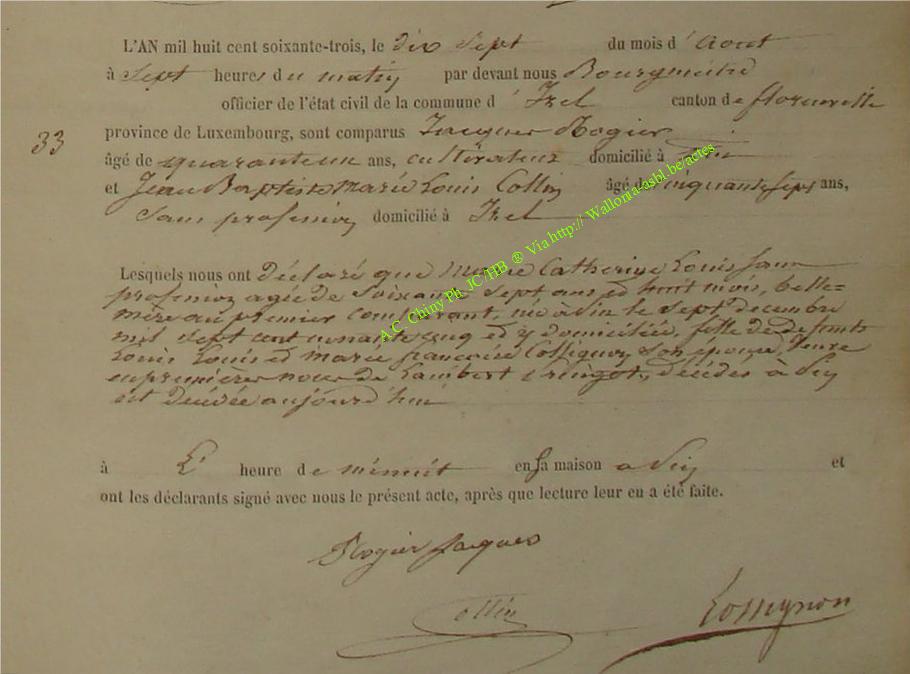 L'AN mil huit cent soixante-trois, le dix Sept du mois d'Aout
à Sept heures du matin par devant nous Bourgmestre
officier de l'état civil de la commune d'Izel canton de florenville
33
province de Luxembourg, sont comparus Jacques Rogier
âgé de quarante un ans, cultivateur domicilié à
et Jean Baptiste Marie Louis Collin âgé de cinquante sept ans,
Sans profession domicilié à Izel
Lesquels nous ont déclaré que Marie Catherine Louis Sans
profession agée de Soixante Sept ans et huit mois, belle=
mère au premier comparant, née à le Sept decembre
mil Sept cent nonante cinq et y domiciliée, fille de defunts
Louis Louis et marie françoise Collignon, Son épouse, Veuve
en premières noces de Lambert décédée à
est decédée aujourd'hui
à L' heure de minuit en Sa maison a et
ont les déclarants signé avec nous le présent acte, après que lecture leur en a été faite.
Rogier Jacques
Collin
Rossignon
A.C. Chiny Ph. JC/HB ® Via http:// Wallonia-asbl.be/actes